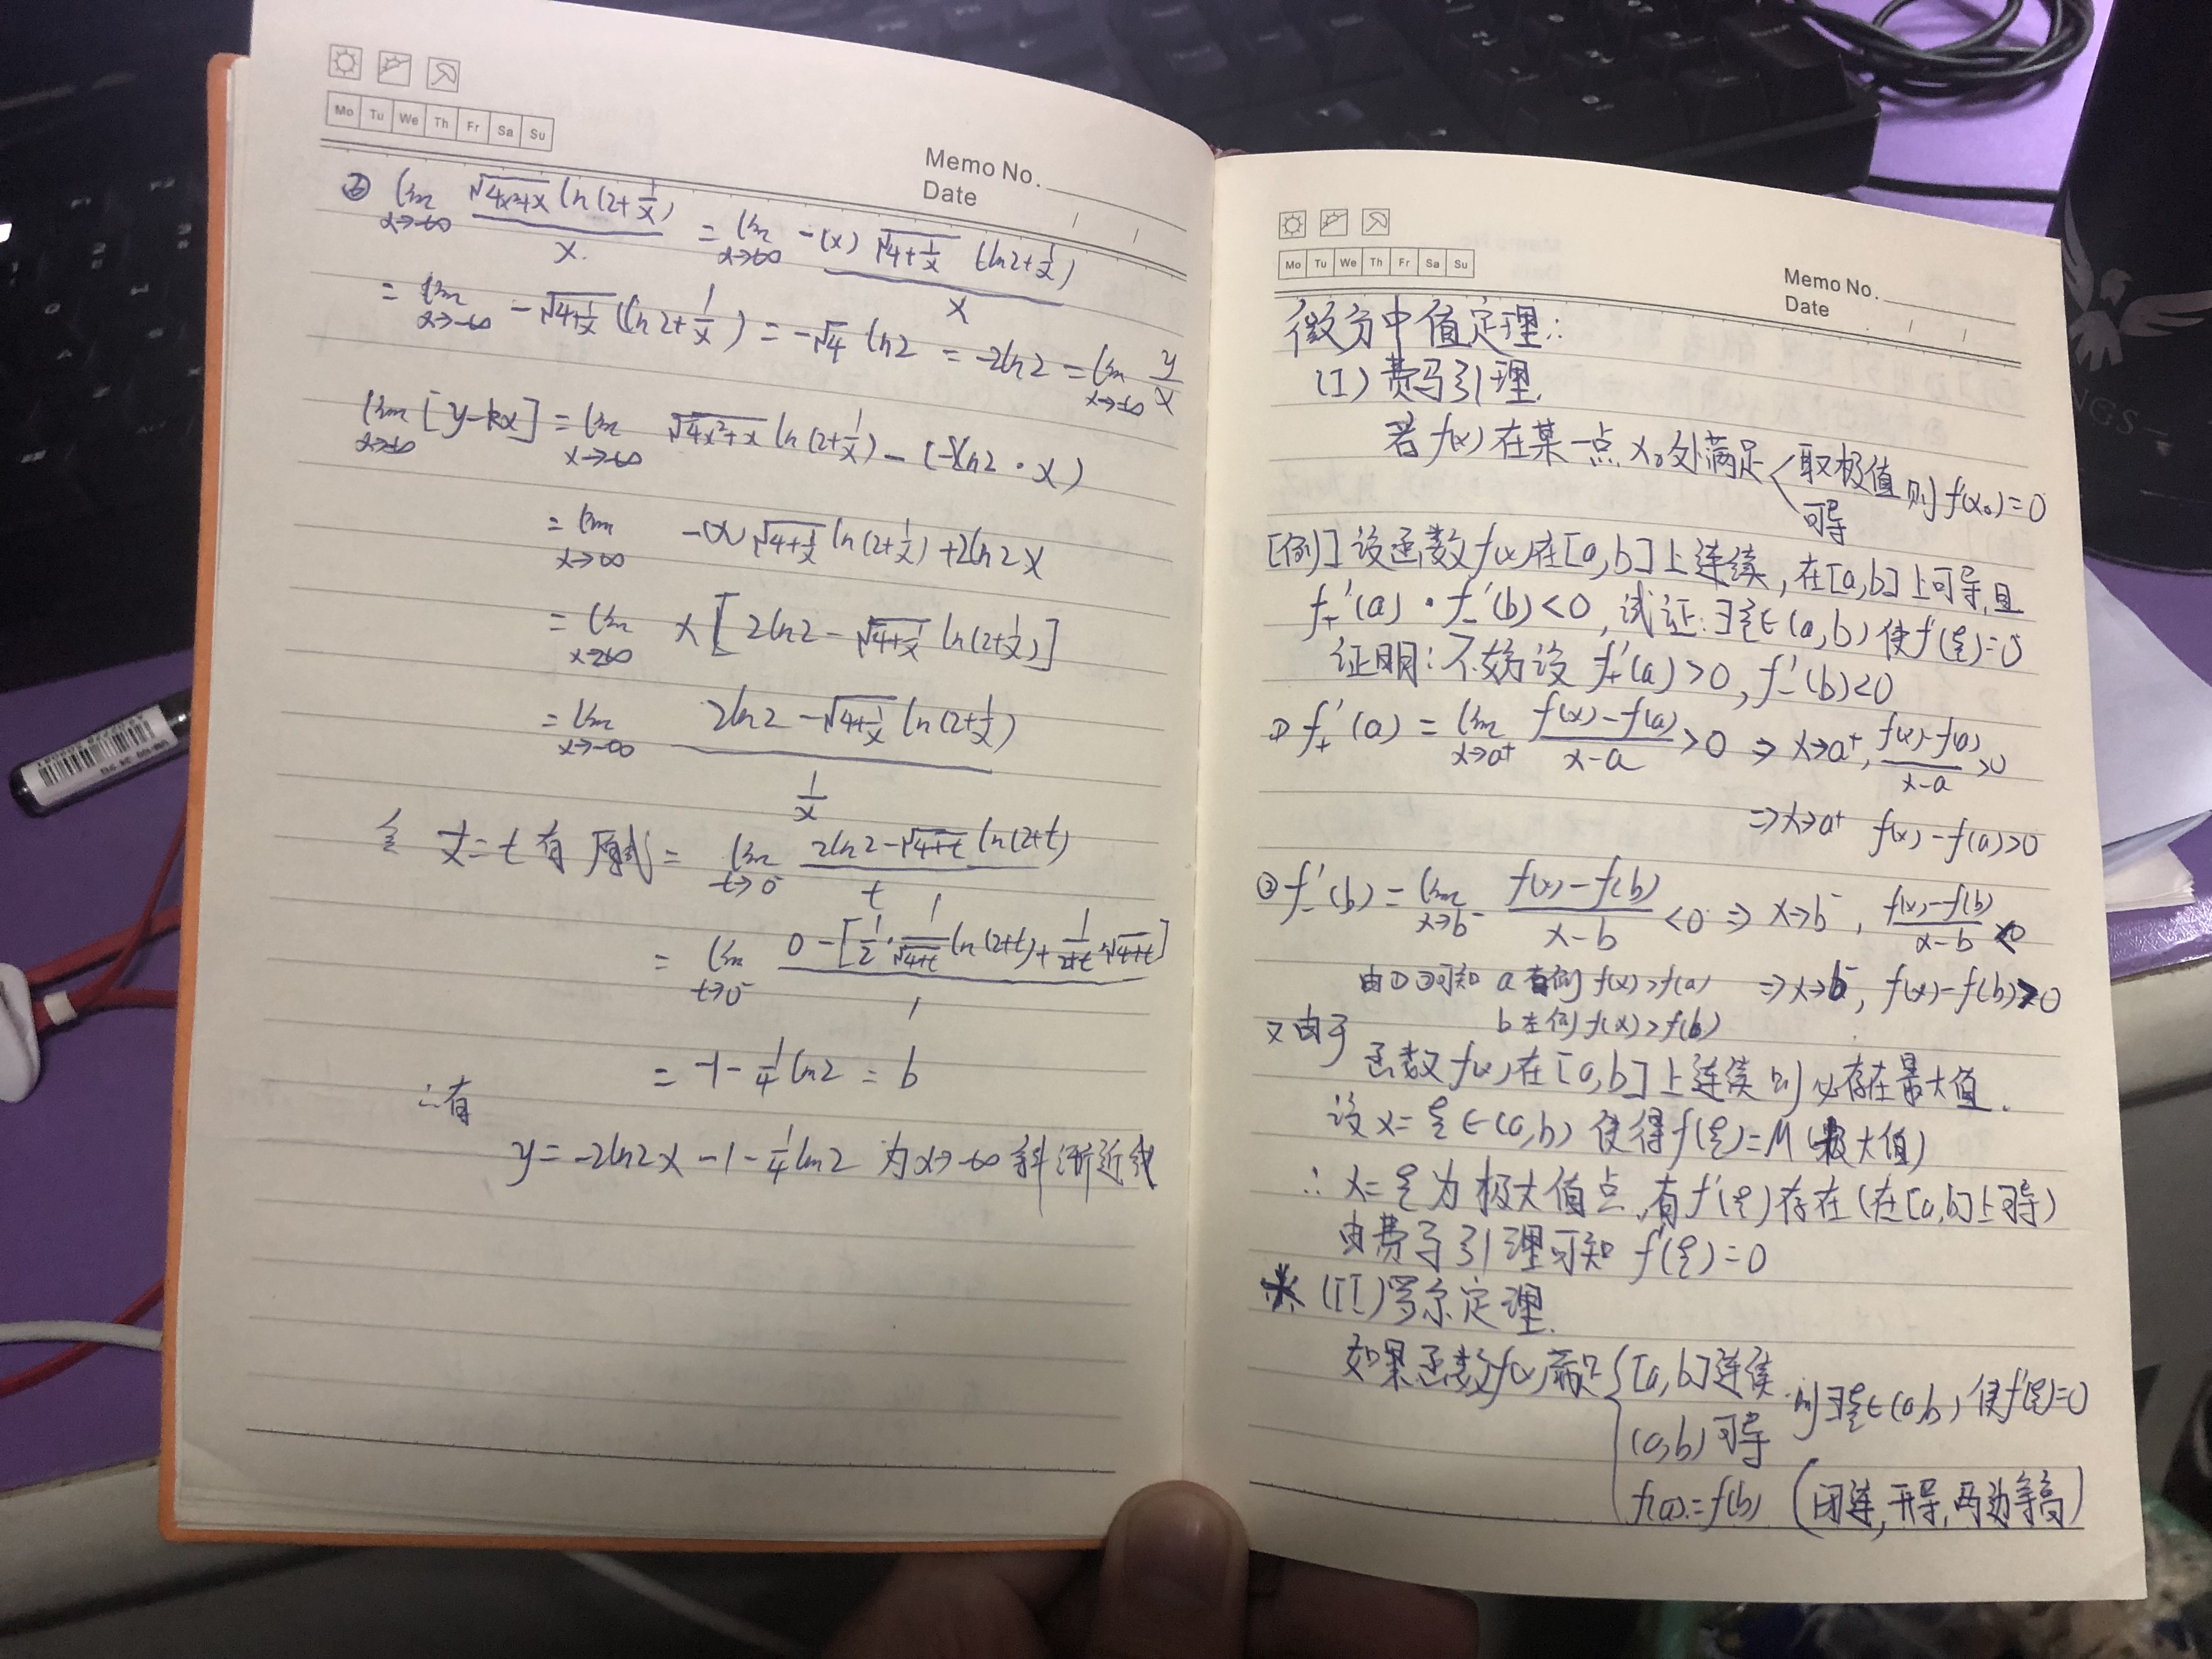 Mo Tu We Th Fr Sa Su
Memo No.
Date / /
② lim x→-∞ √(4x²+x) ln(2+1/x) / x. = lim x→-∞ -(x) √(4+1/x) (ln2+1/x) / x
= lim x→-∞ -√(4+1/x) (ln2+1/x) = -√4 ln2 = -2ln2 = lim x→-∞ y/x
lim x→-∞ [y-kx] = lim x→-∞ √(4x²+x) ln(2+1/x) - (-2ln2·x)
= lim x→∞ -(x)√(4+1/x) ln(2+1/x) +2ln2x
= lim x→-∞ x[2ln2-√(4+1/x) ln(2+1/x)]
= lim x→-∞ 2ln2-√(4+1/x) ln(2+1/x) / 1/x
令 1/x=t 有 原式= lim t→0⁻ 2ln2-√(4+t) ln(2+t) / t
= lim t→0⁻ 0-[1/2·1/√(4+t) ln(2+t)+1/(2+t)·√(4+t)] / 1
= -1-1/4 ln2 = b
∴有
y=-2ln2x-1-1/4 ln2 为x→-∞斜渐近线
Mo Tu We Th Fr Sa Su
Memo No.
Date / /
微分中值定理:
(I) 费马引理.
若f(x)在某一点x₀处满足<取极值 可导 则f'(x₀)=0
[例]设函数f(x)在[a,b]上连续,在[a,b]上可导,且
f₊'(a)·f₋'(b)<0,试证:∃ξ∈(a,b)使f'(ξ)=0
证明:不妨设f₊'(a)>0,f₋'(b)<0
① f₊'(a)= lim x→a⁺ f(x)-f(a) / x-a >0 ⇒ x→a⁺, f(x)-f(a) / x-a >0
⇒x→a⁺ f(x)-f(a)>0
② f₋'(b)= lim x→b⁻ f(x)-f(b) / x-b <0 ⇒ x→b⁻, f(x)-f(b) / x-b <0
由①②可知 a右侧f(x)>f(a) ⇒x→b⁻, f(x)-f(b)>0
b左侧f(x)>f(b)
又由于
函数f(x)在[a,b]上连续则必存在最大值.
设x=ξ∈(a,b)使得f(ξ)=M(最大值)
∴x=ξ为极大值点,有f'(ξ)存在(在[a,b]上可导)
由费马引理可知f'(ξ)=0
* (II)罗尔定理.
如果函数f(x)满足{[a,b]连续 则∃ξ∈(a,b)使f'(ξ)=0
(a,b)可导
f(a)=f(b) (闭连,开导,两边等高)